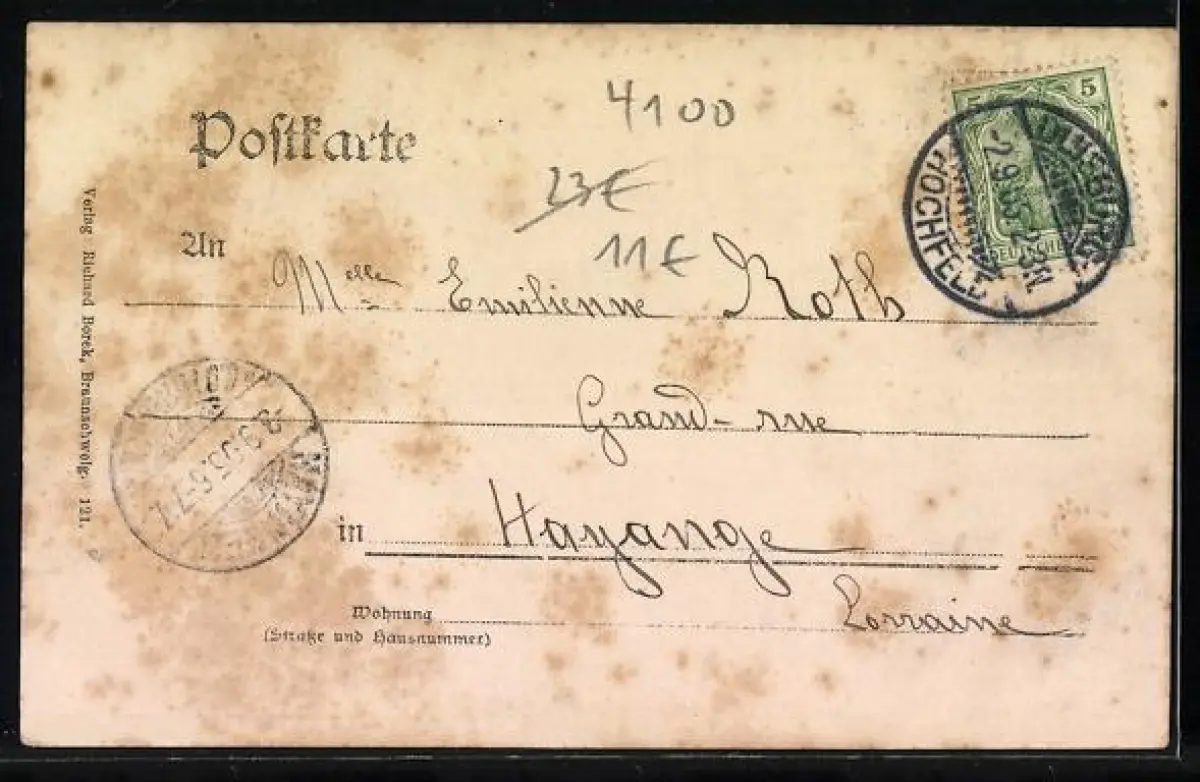 4100
Postkarte
23€
11€
An
Melle Emilienne Roth
Grand-rue
in Hayange
Lorraine
Wohnung
(Straße und Hausnummer)
Verlag: Richard Borek, Braunschweig. 121.
5
HOCHFELD
-2.9.05. 2-3N
3.9.05. 6-7